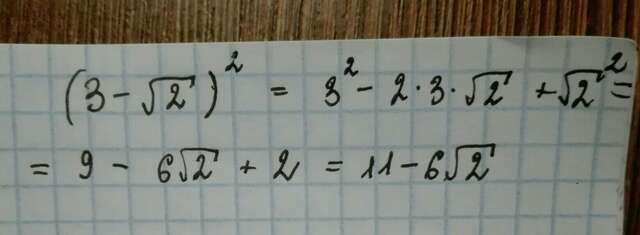 (3 - √2)² = 3² - 2 · 3 · √2 + √2² =
= 9 - 6√2 + 2 = 11 - 6√2